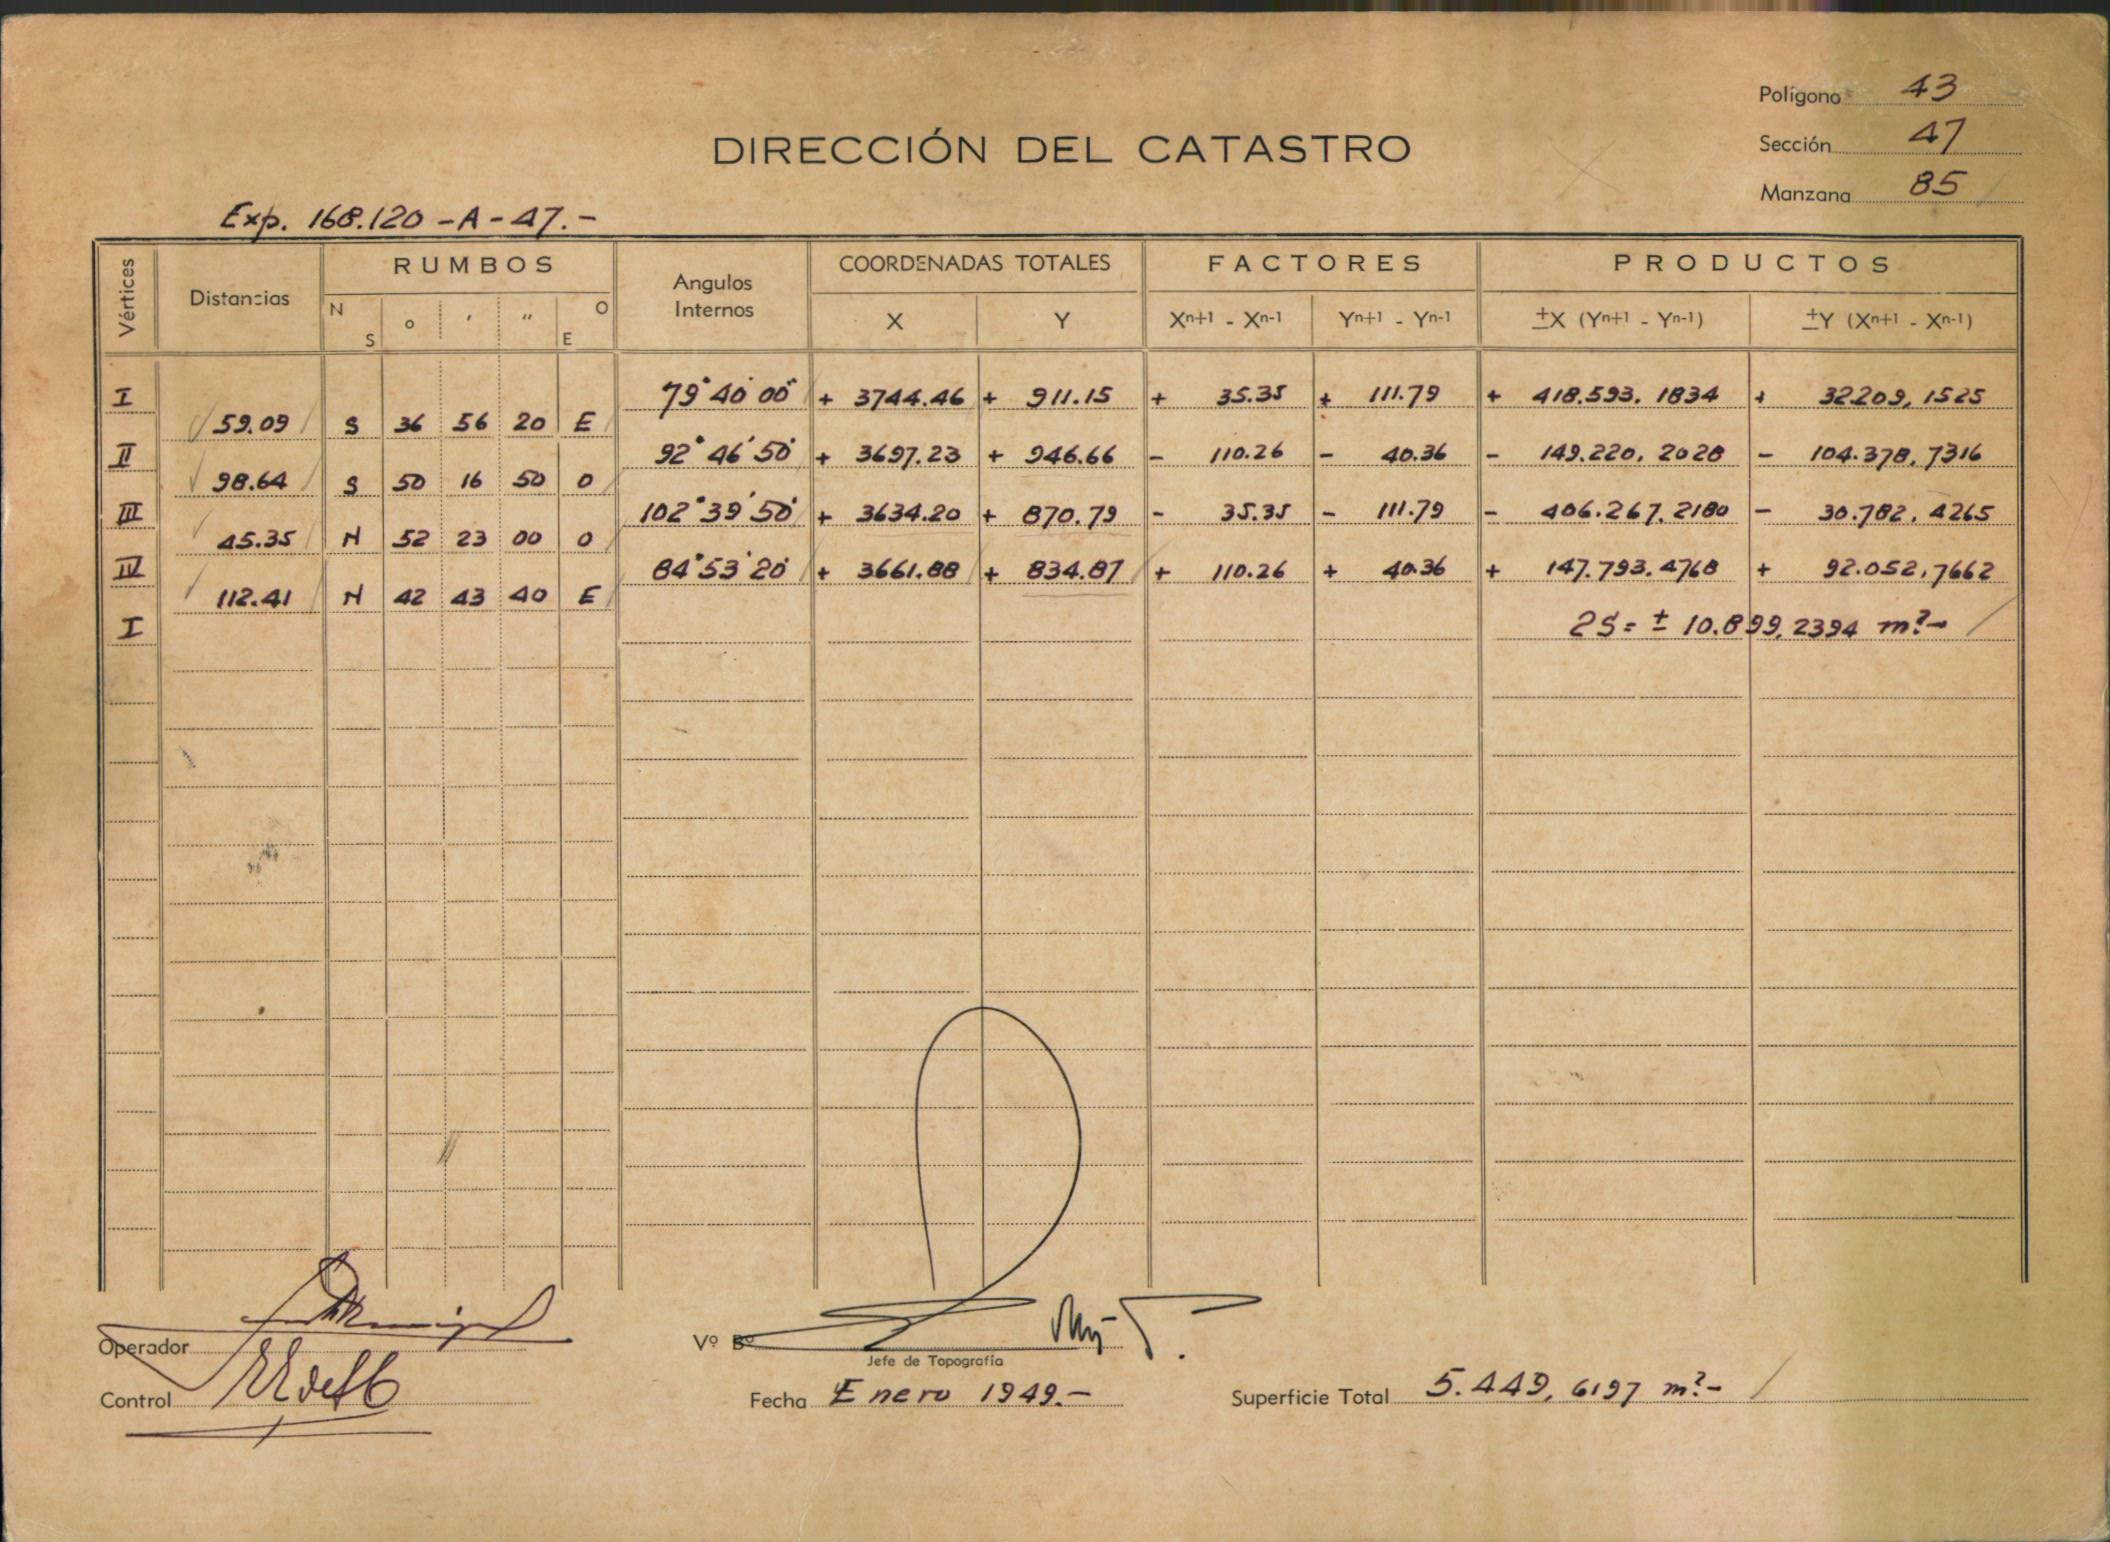 Polígono 43
DIRECCIÓN DEL CATASTRO
Sección 47
Manzana 85
Exp. 168.120 - A - 47. -
Vértices Distancias RUMBOS Angulos Internos COORDENADAS TOTALES FACTORES PRODUCTOS
N S ° ' " O E X Y Xⁿ⁺¹ - Xⁿ⁻¹ Yⁿ⁺¹ - Yⁿ⁻¹ ±X (Yⁿ⁺¹ - Yⁿ⁻¹) ±Y (Xⁿ⁺¹ - Xⁿ⁻¹)
I 79° 40' 00" + 3744.46 + 911.15 + 35.35 + 111.79 + 418.593,1834 + 32209,1525
59.09 S 36 56 20 E
II 92° 46' 50" + 3697.23 + 946.66 - 110.26 - 40.36 - 149.220,2028 - 104.378,7316
98.64 S 50 16 50 O
III 102° 39' 50" + 3634.20 + 870.79 - 35.35 - 111.79 - 406.267,2180 - 30.782,4265
45.35 N 52 23 00 O
IV 84° 53' 20" + 3661.88 + 834.87 + 110.26 + 40.36 + 147.793,4768 + 92.052,7662
112.41 N 42 43 40 E
I 2S = ± 10.899,2394 m². -
Operador
Vº Bº
Jefe de Topografía
Control
Fecha Enero 1949. -
Superficie Total 5.449,6197 m². -